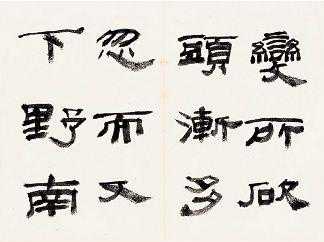 變所砍
頭漸多
忽而又
下野南